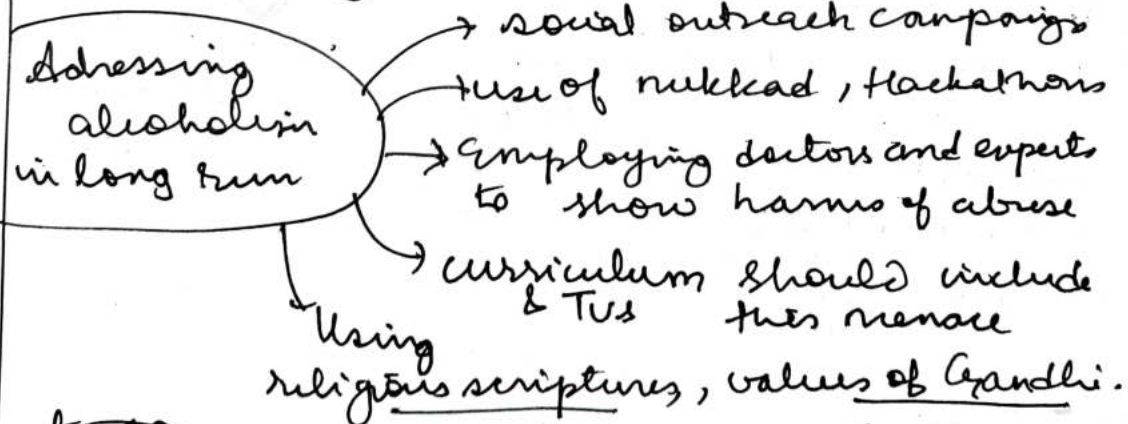 Adressing
alcoholism
in long run
social outreach campaigs
use of nukkad, Hackathons
Employing doctors and experts
to show harms of abuse
curriculum should include
& TVs this menace
Using
religious scriptures, values of Gandhi.